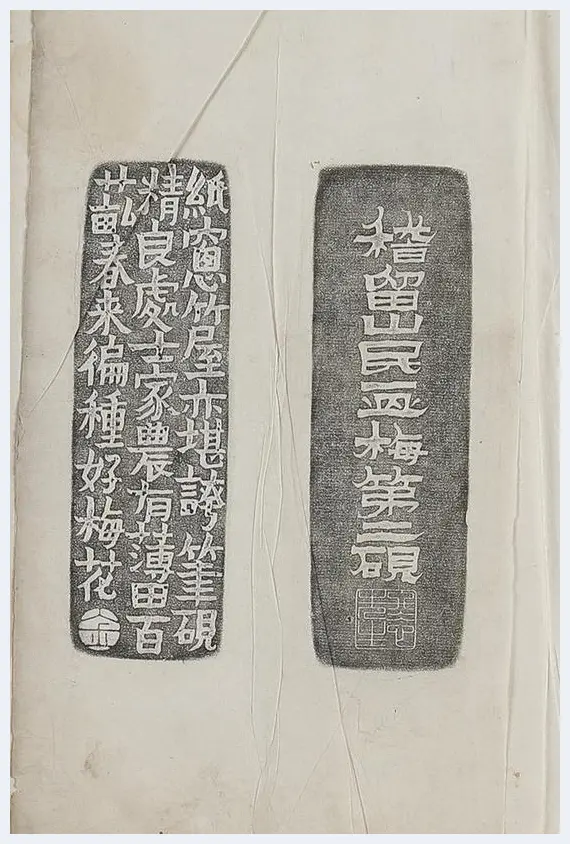 稽留山民画梅第二硯
紙窻竹屋亦堪誇筆硯
精良處士家農有薄田百
畝春来徧種好梅花